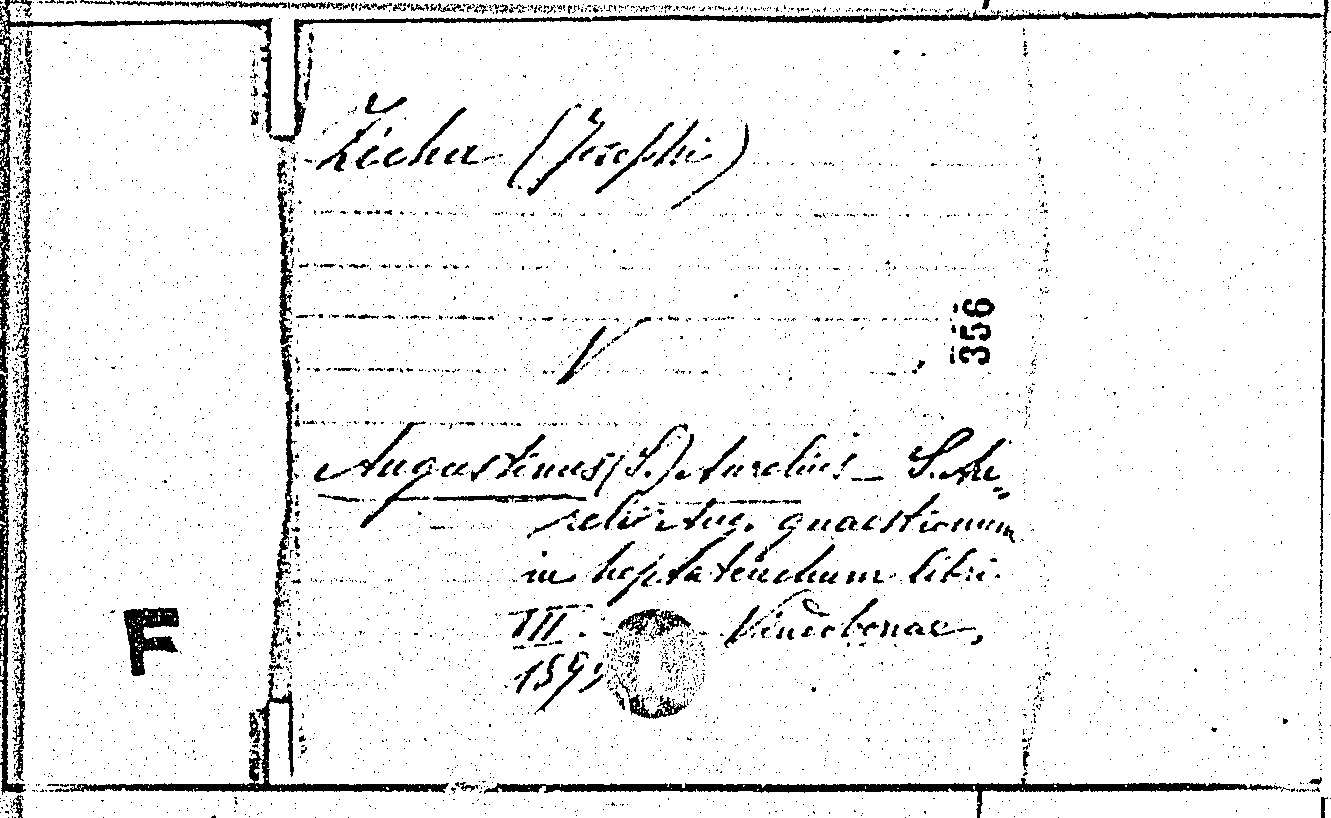 Zicha (Josephi)
V
356
Augustinus (S.) Aurelius _ S. Au-
relii Aug. quaestionum
in heptateuchum libri
VII. Vindobonae,
F